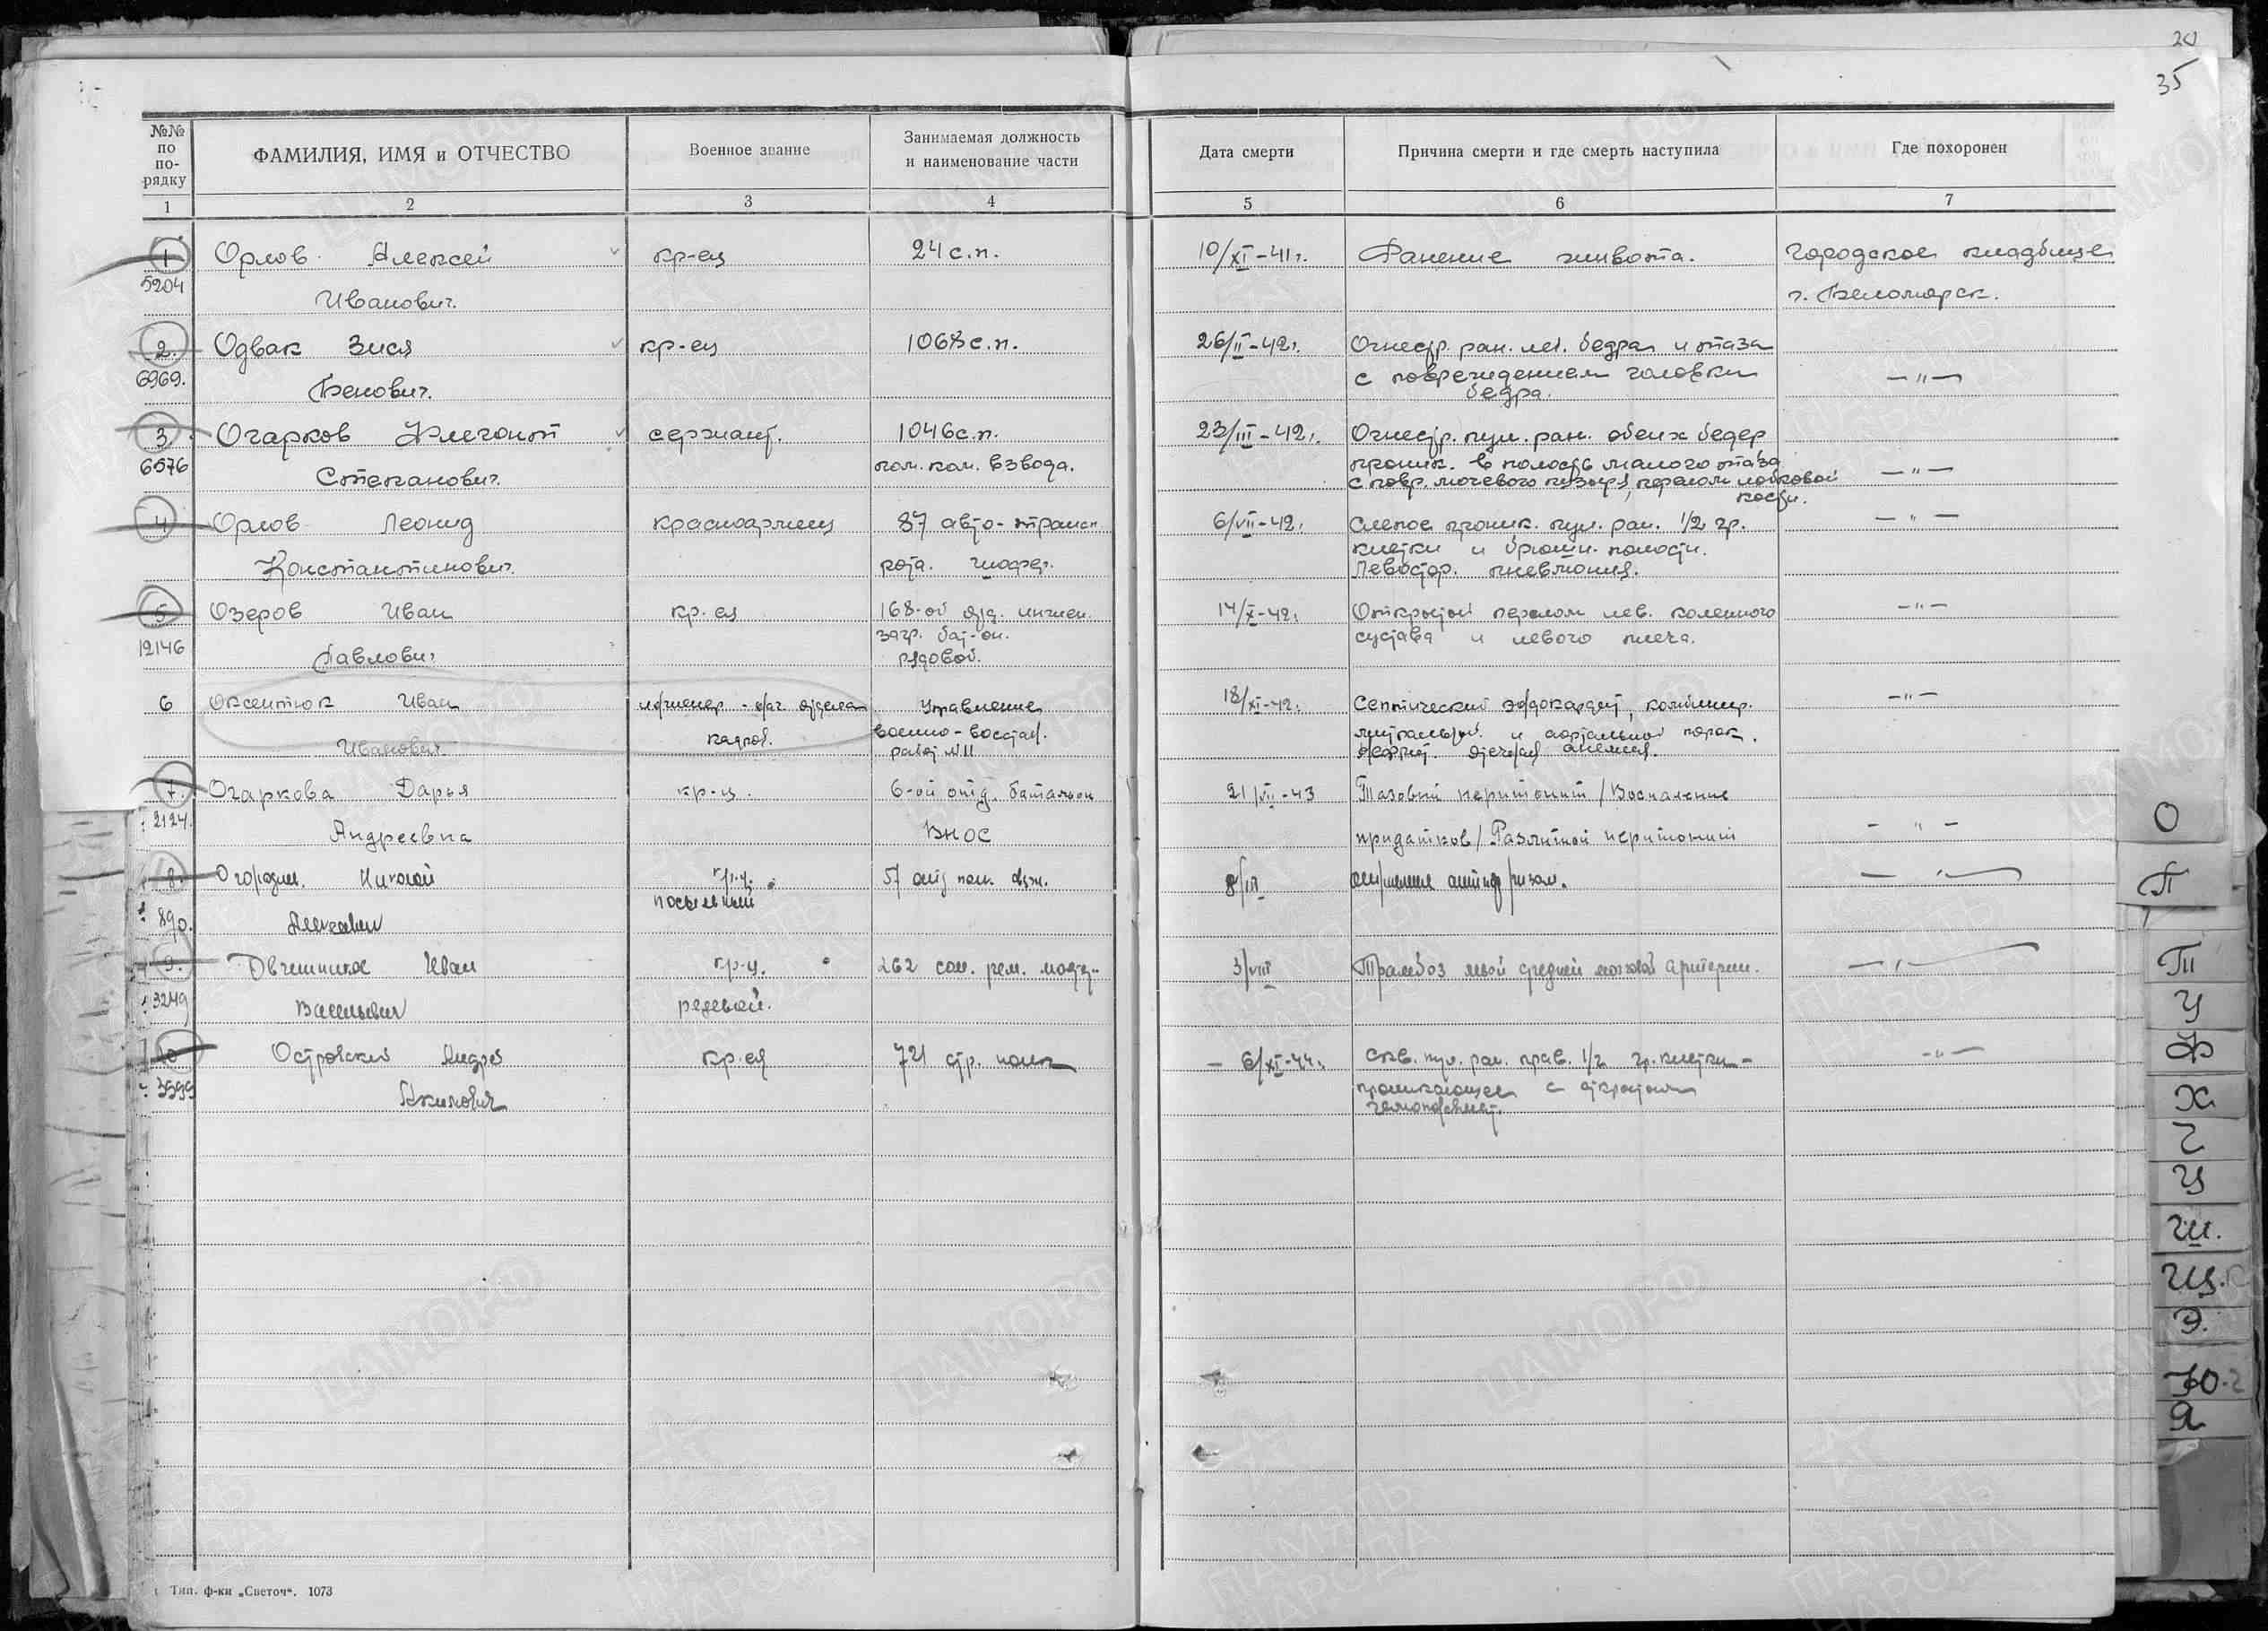 20
35
№№ по по-рядку
ФАМИЛИЯ, ИМЯ и ОТЧЕСТВО
Военное звание
Занимаемая должность
и наименование части
Дата смерти
Причина смерти и где смерть наступила
Где похоронен
1 2 3 4 5 6 7
1 Орлов Алексей кр-ец 24 с.п. 10/XI-41г. Ранение живота. Городское кладбище
5204 Иванович. г. Беломорск.
2. Одвак Зися кр-ец 1068 с.п. 26/II-42г. Огнестр. ран. лев. бедра и таза
6969. Бенович. с повреждением головки — " —
бедра.
3 Огарков Клегонт сержант. 1046 с.п. 23/III-42г. Огнестр. пул. ран. обеих бедер
6576 Степанович. пом. ком. взвода. проник. в полость малого таза — " —
с повр. мочевого пузыря, перелом лобковой
кости.
4 Орлов Леонид красноармеец 87 авто-трансп 6/VII-42г. Слепое проник. пул. ран. 1/2 гр. — " —
клетки и брюшн. полости.
Константинович. рота. шофер. Левостор. пневмония.
5 Озеров Иван кр-ец 168-ой отд. инжен. 14/X-42г. Открытый перелом лев. коленного — " —
загр. бат-он. сустава и левого плеча.
12146 Павлович рядовой.
6 Оксентюк Иван инженер - нач. отдела Управление 18/XI-42г. Септический эндокардит, комбинир. — " —
Иванович кадров. военно-восстан. митральный и аортальный порок.
работ №11 нефрит. анемия.
7. Огаркова Дарья кр-ц. 6-ой отд. батальон 21/VII-43 Тазовый перитонит /Воспаление
2124. Андреевна ВНОС придатков/ Разлитой перитонит — " —
8. Николай кр-ц. 57 8/III — " —
890. посыльный
9. Овчинников Иван кр-ц. 262 рем. 3/VIII Тромбоз левой средней мозговой артерии. — " —
3249 Васильевич
10 Островский Андрей кр-ец 721 стр. полк — 6/XI-44г. Скв. пул. ран. прав. 1/2 гр. клетки - — " —
3599 Акимович проникающее с открытым
О
П
Т
У
Ф
Х
Ч
Ц
Ш.
Щ.
Э.
Ю.
Я
Тип. ф-ки „Светоч“. 1073
ЦАМО.РФ
ПАМЯТЬ НАРОДА